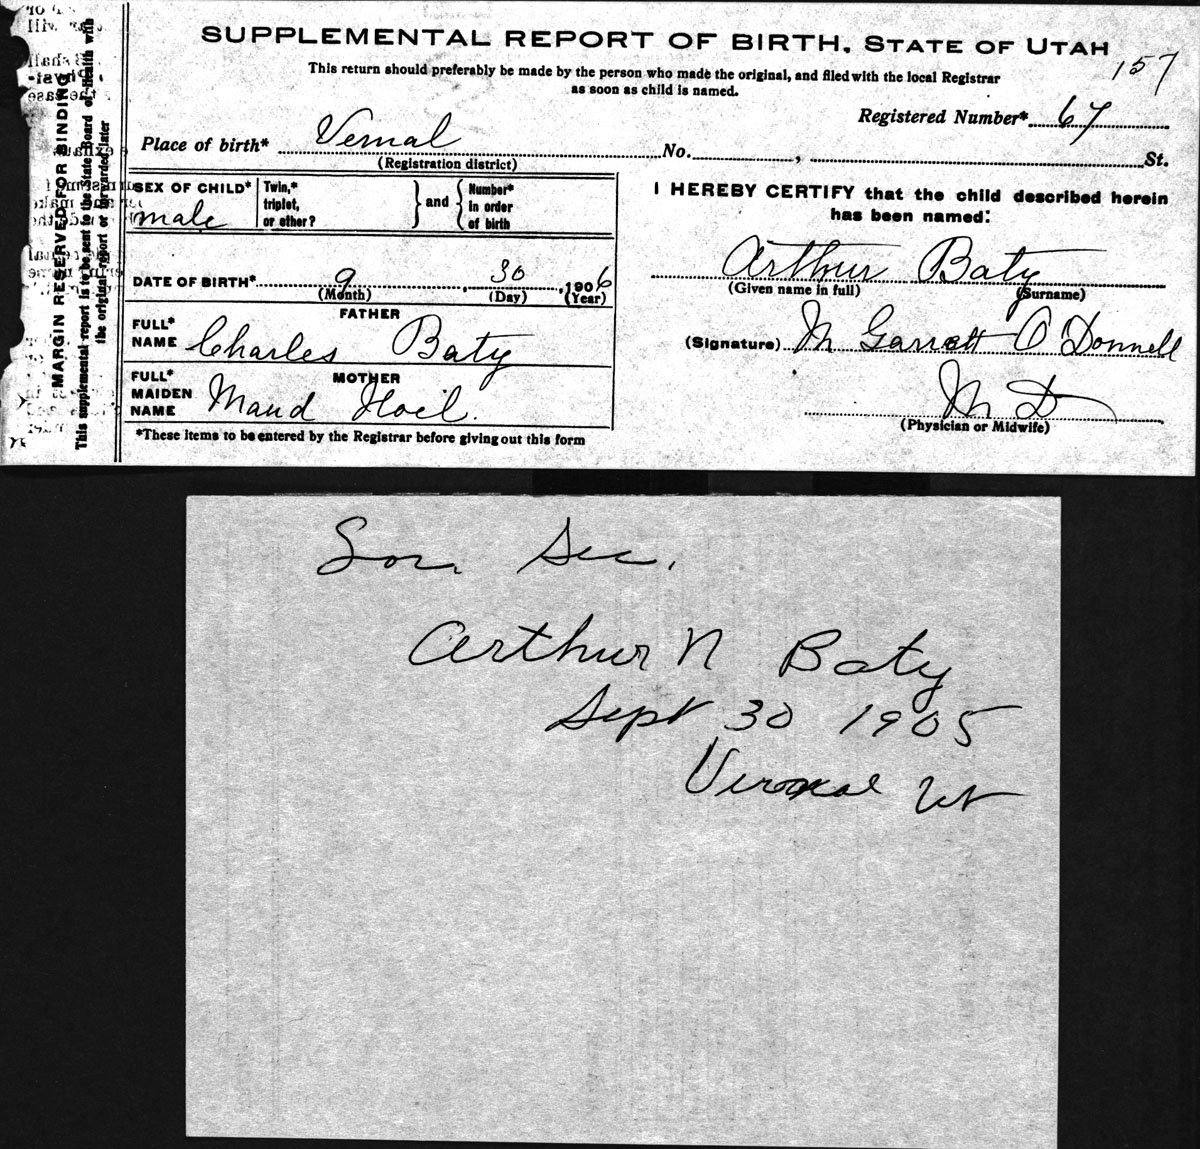 SUPPLEMENTAL REPORT OF BIRTH, STATE OF UTAH
157
This return should preferably be made by the person who made the original, and filed with the local Registrar
as soon as child is named.
Registered Number* 67
Place of birth* Vernal No. , St.
(Registration district)
MARGIN RESERVED FOR BINDING
This supplemental report is to be sent to the State Board of Health with
the original report or forwarded later
SEX OF CHILD* male
Twin,* triplet, or other? } and { Number* in order of birth
DATE OF BIRTH* 9 30, 1906
(Month) (Day) (Year)
FATHER
FULL* NAME Charles Baty
MOTHER
FULL* MAIDEN NAME Maud
*These items to be entered by the Registrar before giving out this form
I HEREBY CERTIFY that the child described herein
has been named:
Arthur Baty
(Given name in full) (Surname)
(Signature) M Garrett O Donnell
M D
(Physician or Midwife)
Soc. Sec.
Arthur N Baty
Sept 30 1905
Vernal Ut